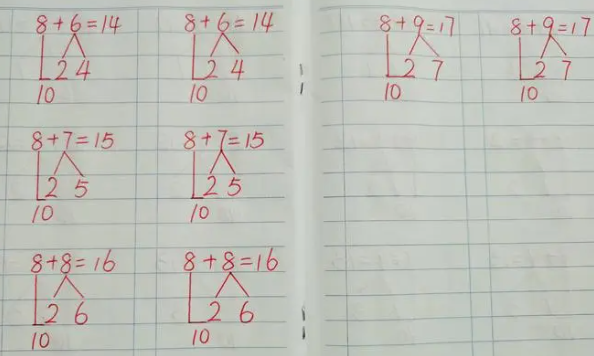 8+6=14 8+6=14
2 4 2 4
10 10
8+7=15 8+7=15
2 5 2 5
10 10
8+8=16 8+8=16
2 6 2 6
10 10
8+9=17 8+9=17
2 7 2 7
10 10